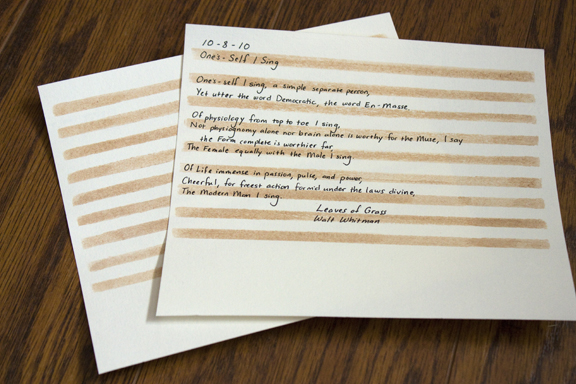 10-8-10
One's-Self I Sing
One's-self I sing, a simple separate person,
Yet utter the word Democratic, the word En-Masse.
Of physiology from top to toe I sing,
Not physiognomy alone nor brain alone is worthy for the Muse, I say
the Form complete is worthier far,
The Female equally with the Male I sing.
Of Life immense in passion, pulse, and power,
Cheerful, for freest action form'd under the laws divine,
The Modern Man I sing.
Leaves of Grass
Walt Whitman